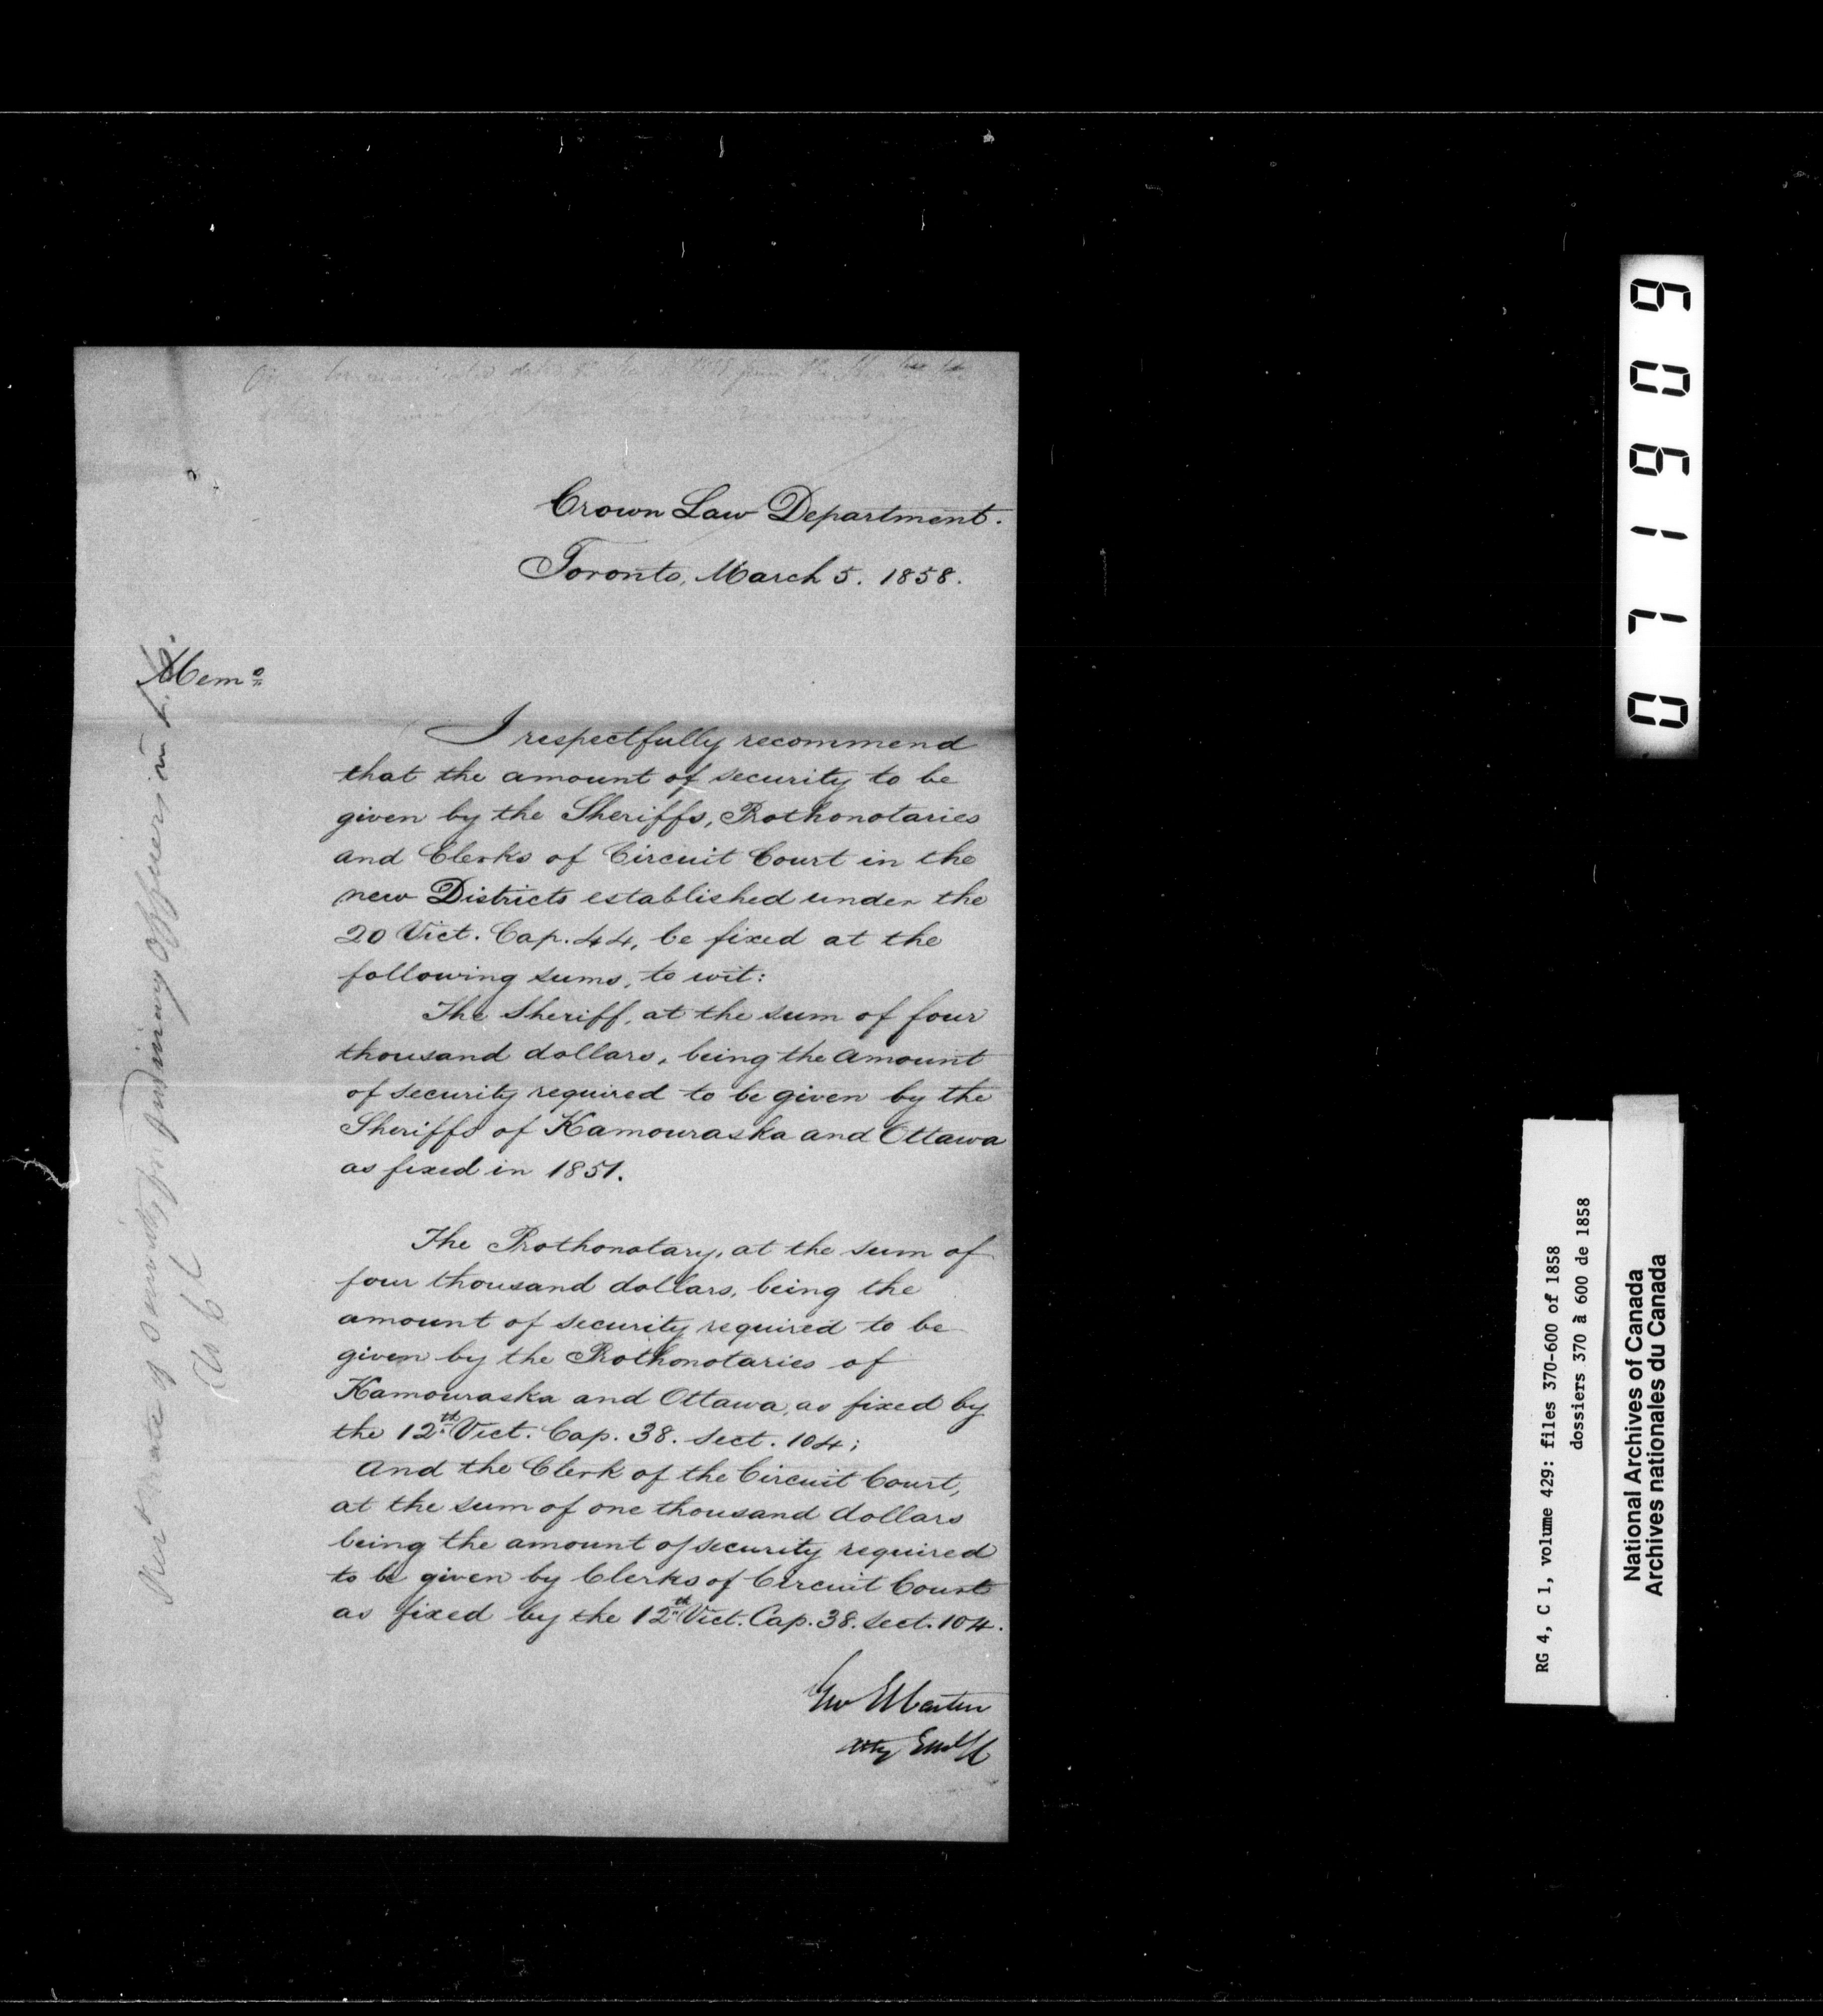 Crown Law Department.
Toronto, March 5. 1858.
Memo
I respectfully recommend
that the amount of security to be
given by the Sheriffs, Prothonotaries
and Clerks of Circuit Court in the
new Districts established under the
20 Vict. Cap. 44, be fixed at the
following sums, to wit:
The Sheriff, at the sum of four
thousand dollars, being the amount
of security required to be given by the
Sheriffs of Kamouraska and Ottawa
as fixed in 1851.
The Prothonotary, at the sum of
four thousand dollars, being the
amount of security required to be
given by the Prothonotaries of
Kamouraska and Ottawa, as fixed by
the 12th Vict. Cap. 38. sect. 104;
and the Clerk of the Circuit Court,
at the sum of one thousand dollars
being the amount of security required
to be given by Clerks of Circuit Court
as fixed by the 12th Vict. Cap. 38. sect. 104.
Geo E Cartier
Atty Genl
of security for Judiciary Officers in L. C.
071609
RG 4, C 1, volume 429: files 370-600 of 1858
dossiers 370 à 600 de 1858
National Archives of Canada
Archives nationales du Canada